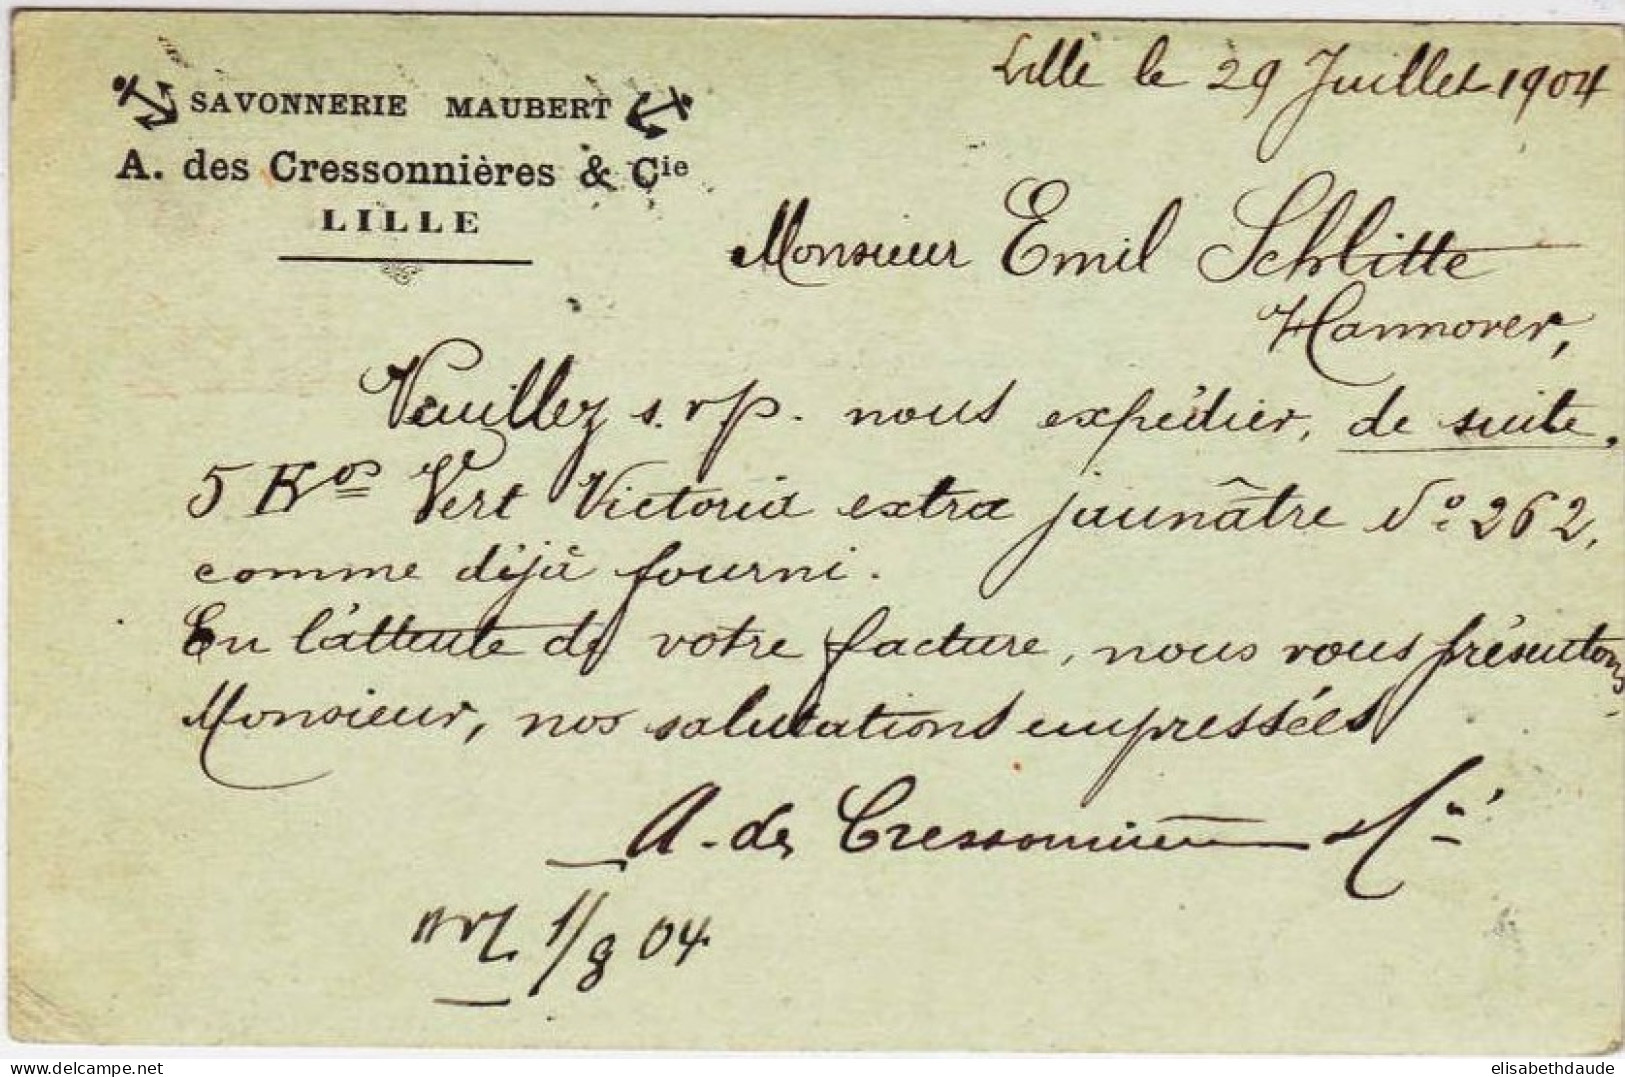 SAVONNERIE MAUBERT
A. des Cressonnières & Cie
LILLE
Lille le 29 Juillet 1904
Monsieur Emil Schlitte
Hannover,
Veuillez s. v p. nous expédier, de suite,
5 Kos Vert Victoria extra jaunâtre No 262,
comme déjà fourni.
En l'attente de votre facture, nous vous présentons,
Monsieur, nos salutations empressées
A. des Cressonnières & Cie
1/8 04.
delcampe.net
elisabethdaude